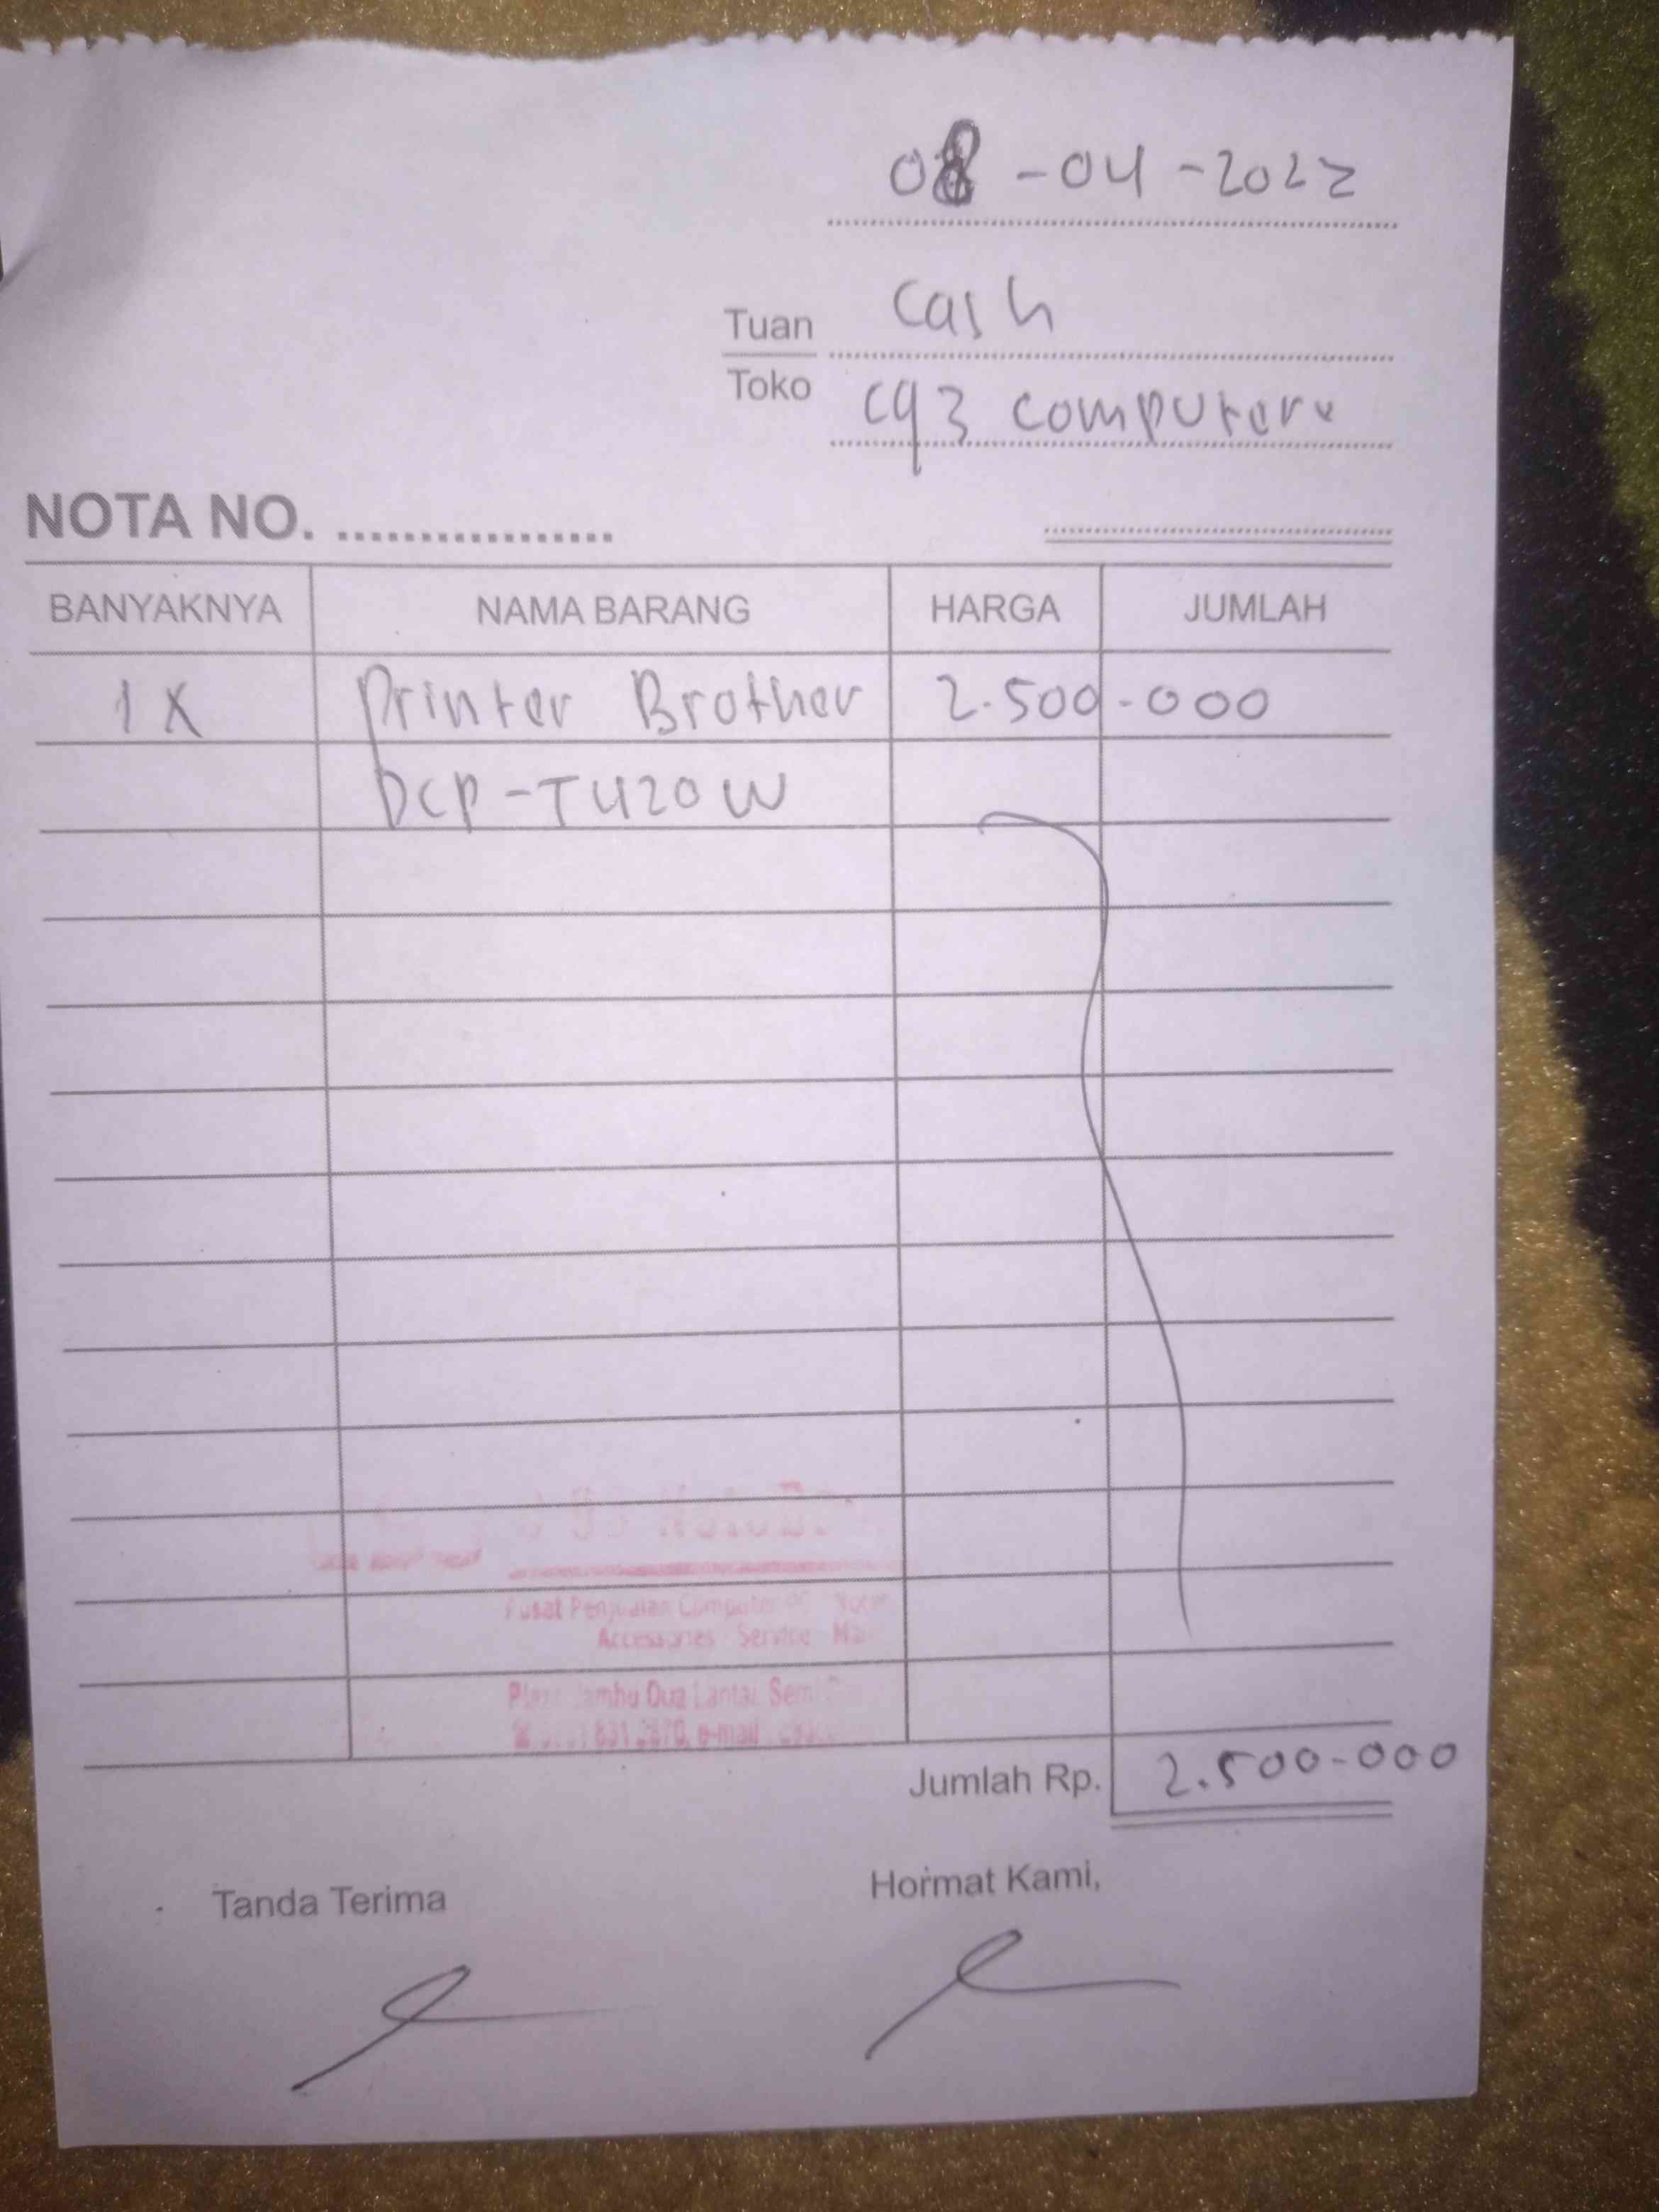 08-04-2022
Tuan Cash
Toko C93 Computere
NOTA NO. .................
BANYAKNYA NAMA BARANG HARGA JUMLAH
1 X Printer Brother 2.500-000
DCP-T420W
Pusat Penjualan Computer
Accessories Service
Dua Lantai Semi
e-mail
Jumlah Rp. 2.500-000
Tanda Terima Hormat Kami,